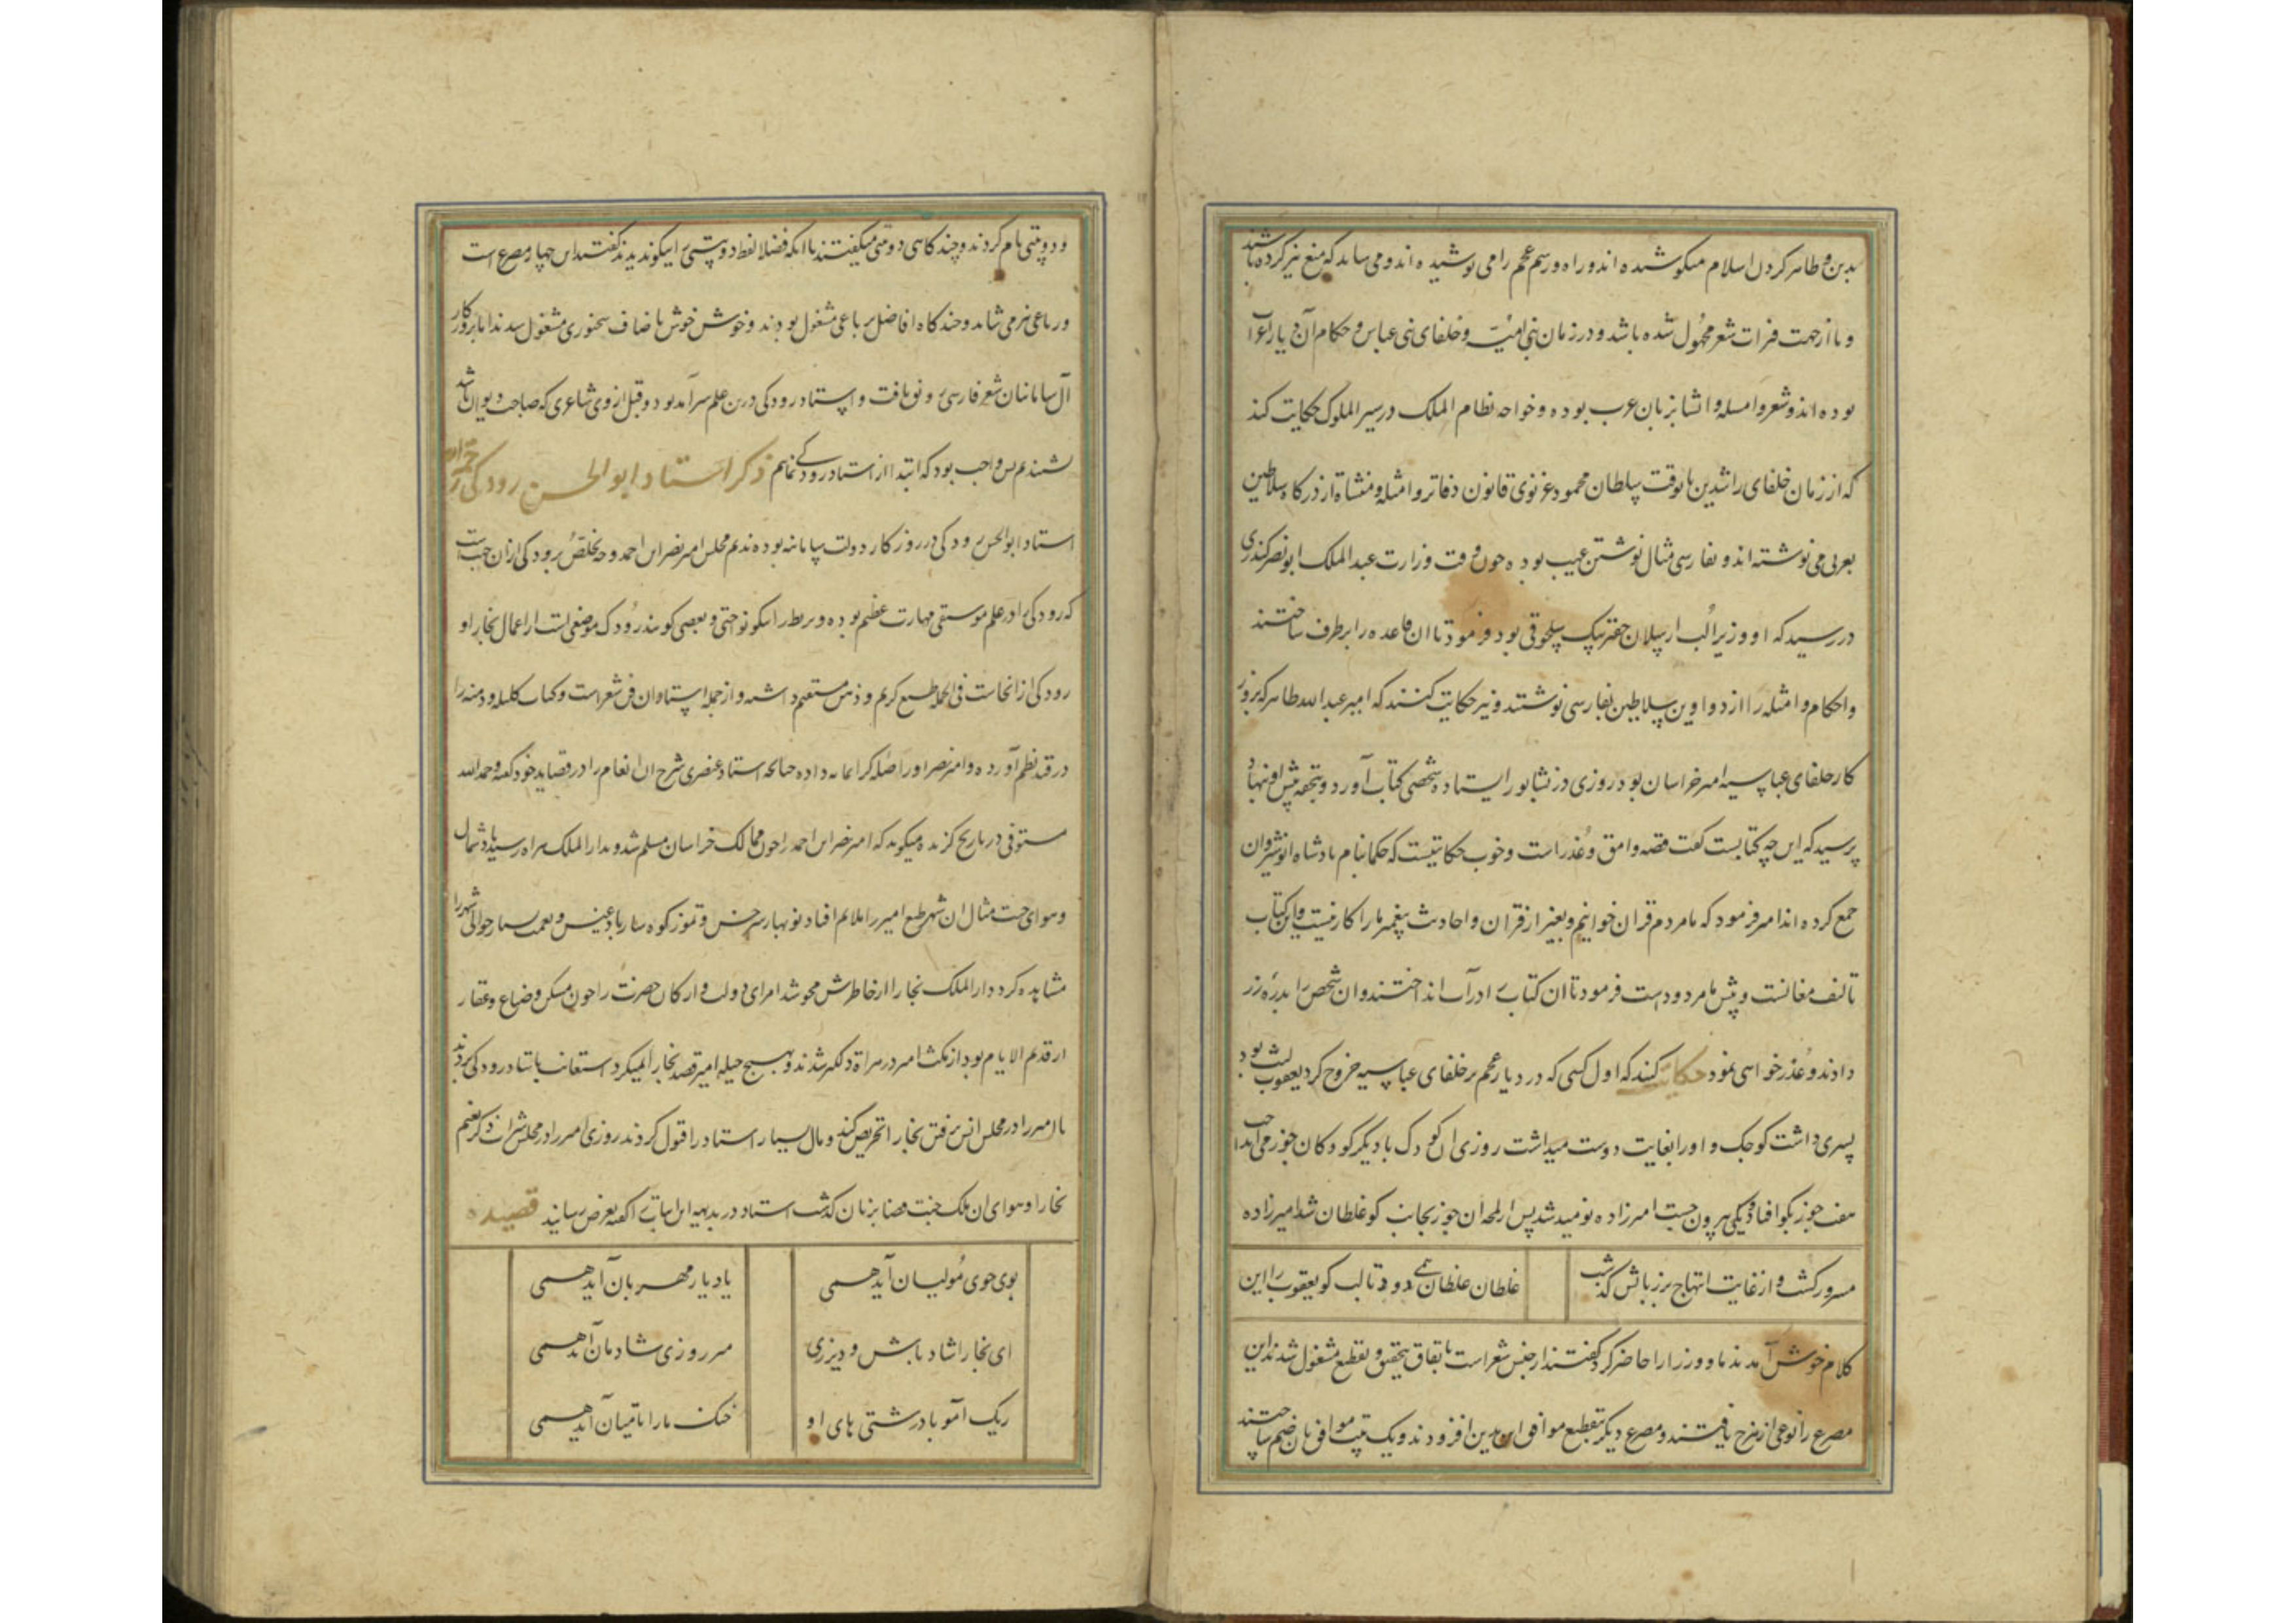 بدین و ظاهر کردن اسلام میکوشیده اند و راه و رسم عجم را می پوشیده اند و می شاید که منع نیز کرده باشند
و یا از جهت فترات شعر مجهول شده باشد و در زمان بنی امیّه و خلفای بنی عباس و حکام آن دیار اعراب
بوده اند و شعر و امسله و انشا بزبان عرب بوده و خواجه نظام الملک در سیر الملوک حکایت کند
که از زمان خلفای راشدین تا بوقت سلطان محمود غزنوی قانون دفاتر و امثله و منشاة از درکاه سلاطین
بعربی می نوشته اند و بفارسی مثال نوشتن عیب بوده چون وقت وزارت عبد الملک ابو نصر کندری
در رسید که او وزیر الب ارسلان جغربیک سلجوقی بود فرمود تا ان قاعده را برطرف ساختند
و احکام و امثله را از دواوین سلاطین بفارسی نوشتند و نیز حکایت کنند که امیر عبد الله طاهر که بروز
کار خلفای عباسیه امیر خراسان بود روزی در نشابور ایستاده شخصی کتاب آورد و بتحفه پیش او نهاد
پرسید که این چه کتابیست کفت قصه وامق و عُذراست و خوب حکایتیست که حکما بنام پادشاه انوشروان
جمع کرده اند امیر فرمود که ما مردم قران خوانیم و بغیر از قران و احادیث پیغمبر ما را کار نیست و این کتاب
تالیف مغانست و پیش ما مردودست فرمود تا ان کتاب را در آب انداختند و ان شخص را بدرهٔ زر
دادند و عُذر خواهی نمود حکایت کنند که اول کسی که در دیار عجم بر خلفای عباسیه خروج کرد یعقوب لیث بود
پسری داشت کوچک و او را بغایت دوست میداشت روزی ان کودک با دیکر کودکان جوز می انداخت
هفت جوز بکو افتاد و یکی بیرون جست امیرزاده نومید شد پس از لمحه ان جوز بجانب کو غلطان شد امیرزاده
مسرور کشت و از غایت ابتهاج بر زبانش کذشت غلطان غلطان همی دود تا لب کو یعقوب را این
کلام خوش آمد ندما و وزرا را حاضر کرد کفتند از جنس شعر است باتفاق بتحقیق و تقطیع مشغول شدند این
مصرع را نوعی از هزج یافتند و مصرع دیکر بتقطیع موافق این بدین افزودند و یک بیت موافق بان ضم ساختند
و دو بیتی نام کردند و چند کاهی دو بیتی میکفتند تا انکه فضلا لفظ دو بیتی را نیکو ندیدند کفتند این چهار مصرع است
و رباعی نیز می شاید و چند کاه افاضل برباعی مشغول بودند و خوش خوش باصناف سخنوری مشغول شدند اما بروزکار
آل سامانیان شعر فارسی رونق یافت و استاد رودکی درین علم سرآمد بود و قبل از وی شاعری که صاحب دیوان باشد
نشنیدم پس واجب بود که ابتدا از استاد رودکی نمایم ذکر استاد ابو الحسن رودکی رحمه الله
استاد ابو الحسن رودکی در روزکار دولت سامانیه بوده ندیم مجلس امیر نصر ابن احمد و وجه تخلص برودکی ازان جهت است
که رودکی را در علم موسیقی مهارت عظیم بوده و بربط را نیکو نواختی و بعضی کویند رودک موضعی است از اعمال بخارا و
رودکی از انجاست فی الجمله طبع کریم و ذهن مستقیم داشته و از جمله استادان فن شعر است و کتاب کلیله و دمنه را
در قید نظم آورده و امیر نصر او را صله کرانمایه داده چنانکه استاد عنصری شرح ان انعام را در قصاید خود کفته و حمد الله
مستوفی در تاریخ کزیده میکوید که امیر نصر ابن احمد را چون ممالک خراسان مسلم شد و بدار الملک هراه رسید باد شمال
و هوای جنت مثال ان شهر طبع امیر را ملایم افتاد نوبهار سرخس و تموز کوهسار بادغیس و نعمت بسیار حوالی شهر را
مشاهده کرد دار الملک بخارا از خاطرش محو شد امرای دولت و ارکان حضرت را چون مسکن و ضیاع و عقار
از قدیم الایام بود از مکث امیر در هراة دلکیر شدند و بهیچ حیله امیر قصد بخارا نمیکرد استعانت باستاد رودکی بردند
تا امیر را در مجلس انس برفتن بخارا تحریص کند و مال بسیار استاد را قبول کردند روزی امیر را در مجلس شراب ذکر نعیم
بخارا و هوای ان ملک جنت فضا بزبان کذشت استاد در بدیهه این ابیات را کفته بعرض رسانید قصیده
بوی جوی مُولیان آید همی یاد یار مهربان آید همی
ای بخارا شاد باش و دیر زی میر روزی شادمان آید همی
ریک آمو با درشتی های او خنک ما را تا میان آید همی